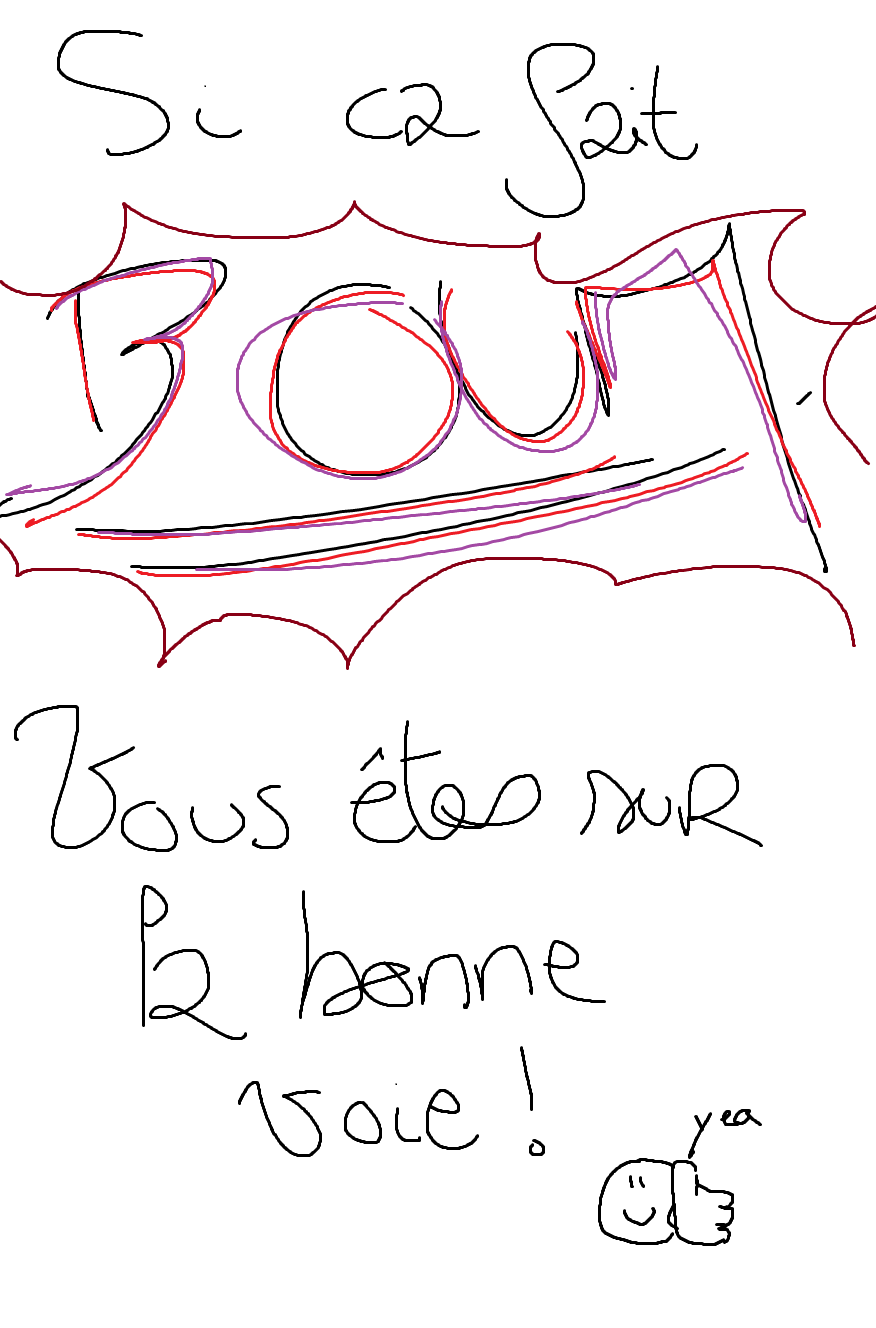 Si ca fait
BOUM
Vous êtes sur
la bonne
voie !
yea